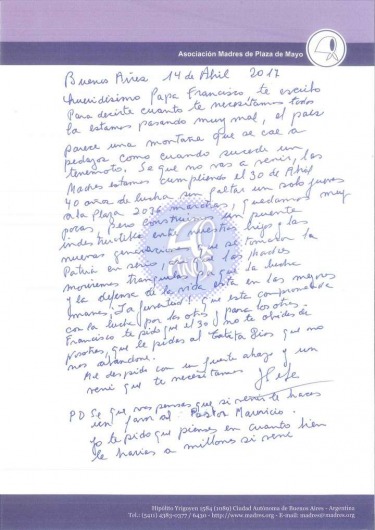 Asociación Madres de Plaza de Mayo
Buenos Aires 14 de Abril 2017
Queridísimo Papa Francisco te escribo
para decirte cuanto te necesitamos todos
la estamos pasando muy mal, el país
parece una montaña que se cae a
pedazos como cuando sucede un
terremoto. Se que no vas a venir, las
Madres estamos cumpliendo el 30 de Abril
40 años de lucha sin faltar un solo jueves
a la Plaza 2036 marchas, quedamos muy
pocas, Pero construimos un puente
indestructible entre nuestros hijos y las
nuevas generaciones que se tomaron la
Patria en serio, las Madres
moriremos tranquilas que la lucha
y la defensa de la vida está en las mejores
manos, La juventud que esta comprometida
con la lucha por los otros y para los otros.
Francisco te pido que el 30 no te olvides de
nosotras, que le pidas al Dios que no
nos abandone.
Me despido con un fuerte abrazo y un
vení que te necesitamos Hebe
PD Se que vos pensas que si venís te haces
un al Pastor Mauricio.
Yo te pido que pienses en cuanto bien
le harías a millones si vení
40 AÑOS
Hipólito Yrigoyen 1584 (1089) Ciudad Autónoma de Buenos Aires - Argentina
Tel.: (5411) 4383-0377 / 6430 - http://www.madres.org - E-mail: madres@madres.org